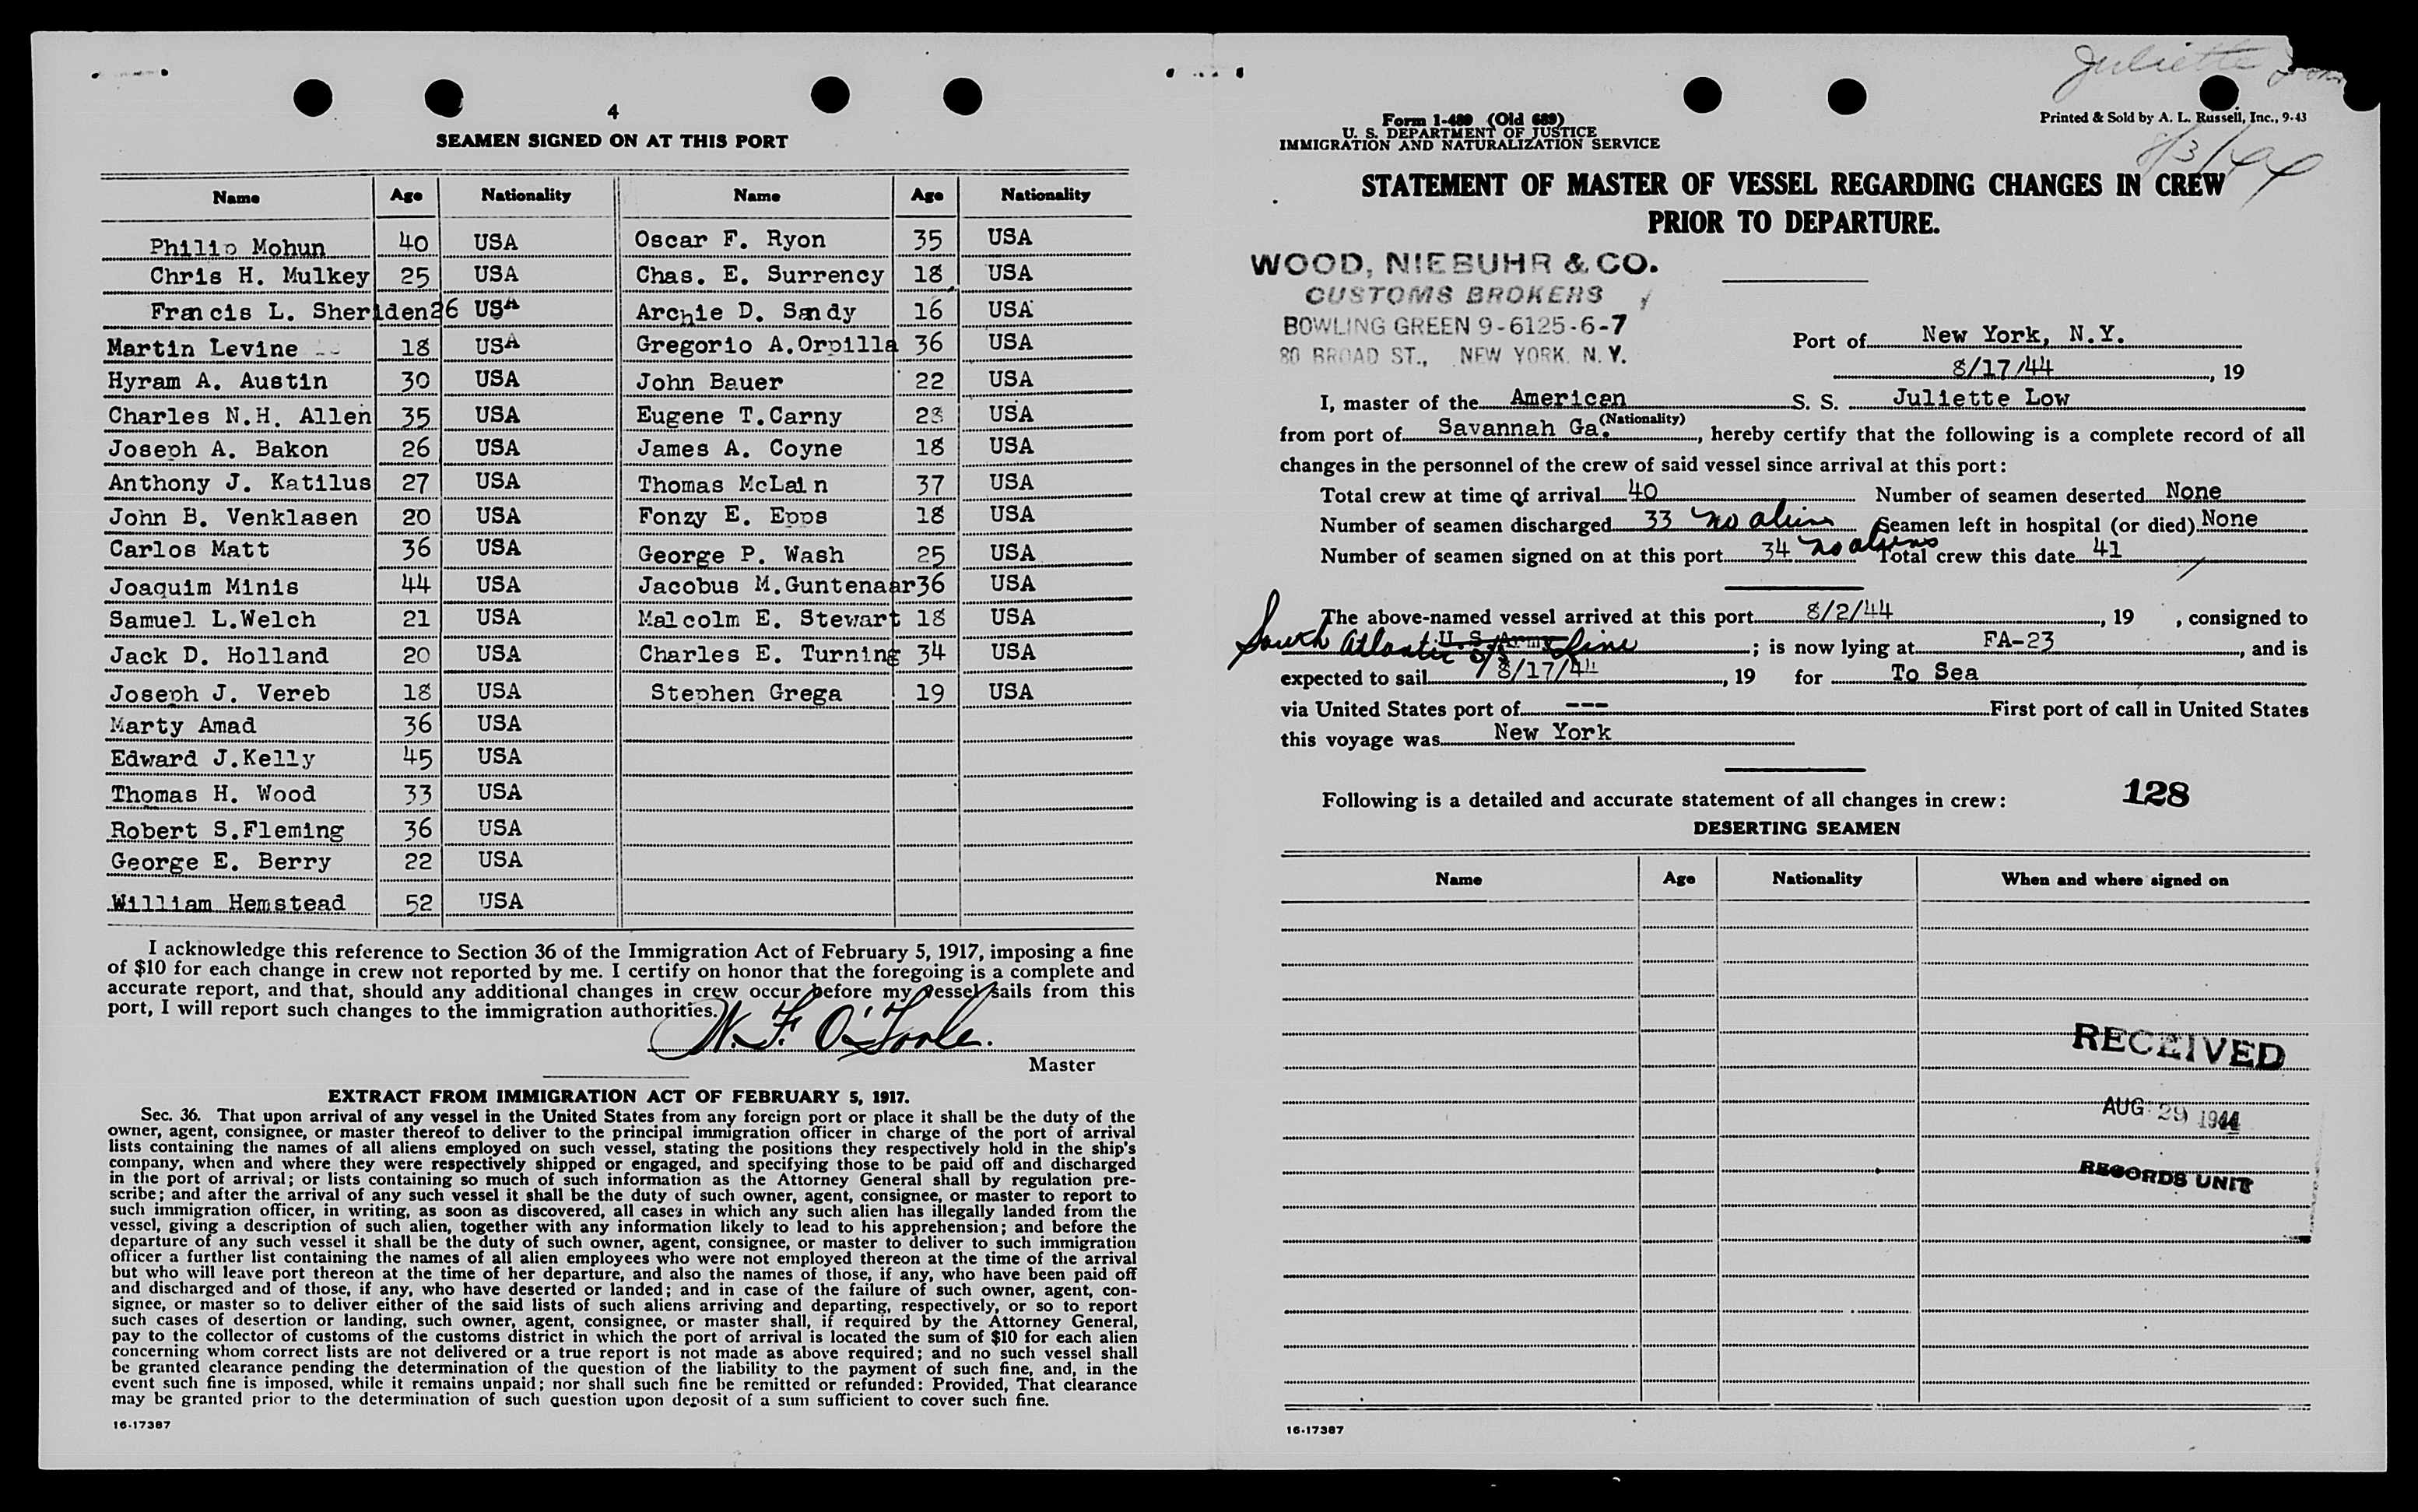 4
SEAMEN SIGNED ON AT THIS PORT
Name Age Nationality Name Age Nationality
Philip Mohun 40 USA Oscar F. Ryon 35 USA
Chris H. Mulkey 25 USA Chas. E. Surrency 18 USA
Francis L. Sheriden 26 USA Archie D. Sandy 16 USA
Martin Levine 18 USA Gregorio A.Orpilla 36 USA
Hyram A. Austin 30 USA John Bauer 22 USA
Charles N.H. Allen 35 USA Eugene T.Carny USA
Joseph A. Bakon 26 USA James A. Coyne 18 USA
Anthony J. Katilus 27 USA Thomas McLain 37 USA
John B. Venklasen 20 USA Fonzy E. Epps 18 USA
Carlos Matt 36 USA George P. Wash 25 USA
Joaquim Minis 44 USA Jacobus M.Guntenaar 36 USA
Samuel L.Welch 21 USA Malcolm E. Stewart 18 USA
Jack D. Holland 20 USA Charles E. Turning 34 USA
Joseph J. Vereb 18 USA Stephen Grega 19 USA
Marty Amad 36 USA
Edward J.Kelly 45 USA
Thomas H. Wood 33 USA
Robert S.Fleming 36 USA
George E. Berry 22 USA
William Hemstead 52 USA
I acknowledge this reference to Section 36 of the Immigration Act of February 5, 1917, imposing a fine
of $10 for each change in crew not reported by me. I certify on honor that the foregoing is a complete and
accurate report, and that, should any additional changes in crew occur before my vessel sails from this
port, I will report such changes to the immigration authorities.
W. F. O'Toole.
Master
EXTRACT FROM IMMIGRATION ACT OF FEBRUARY 5, 1917.
Sec. 36. That upon arrival of any vessel in the United States from any foreign port or place it shall be the duty of the
owner, agent, consignee, or master thereof to deliver to the principal immigration officer in charge of the port of arrival
lists containing the names of all aliens employed on such vessel, stating the positions they respectively hold in the ship's
company, when and where they were respectively shipped or engaged, and specifying those to be paid off and discharged
in the port of arrival; or lists containing so much of such information as the Attorney General shall by regulation pre-
scribe; and after the arrival of any such vessel it shall be the duty of such owner, agent, consignee, or master to report to
such immigration officer, in writing, as soon as discovered, all cases in which any such alien has illegally landed from the
vessel, giving a description of such alien, together with any information likely to lead to his apprehension; and before the
departure of any such vessel it shall be the duty of such owner, agent, consignee, or master to deliver to such immigration
officer a further list containing the names of all alien employees who were not employed thereon at the time of the arrival
but who will leave port thereon at the time of her departure, and also the names of those, if any, who have been paid off
and discharged and of those, if any, who have deserted or landed; and in case of the failure of such owner, agent, con-
signee, or master so to deliver either of the said lists of such aliens arriving and departing, respectively, or so to report
such cases of desertion or landing, such owner, agent, consignee, or master shall, if required by the Attorney General,
pay to the collector of customs of the customs district in which the port of arrival is located the sum of $10 for each alien
concerning whom correct lists are not delivered or a true report is not made as above required; and no such vessel shall
be granted clearance pending the determination of the question of the liability to the payment of such fine, and, in the
event such fine is imposed, while it remains unpaid; nor shall such fine be remitted or refunded: Provided, That clearance
may be granted prior to the determination of such question upon deposit of a sum sufficient to cover such fine.
16-17387
Juliette
Form I-489 (Old 689)
U. S. DEPARTMENT OF JUSTICE
IMMIGRATION AND NATURALIZATION SERVICE
Printed & Sold by A. L. Russell, Inc., 9-43
8/3/44
STATEMENT OF MASTER OF VESSEL REGARDING CHANGES IN CREW
PRIOR TO DEPARTURE.
WOOD, NIEBUHR & CO.
CUSTOMS BROKERS
BOWLING GREEN 9-6125-6-7
80 BROAD ST., NEW YORK. N. Y.
Port of New York, N.Y.
8/17/44, 19
I, master of the American S. S. Juliette Low
(Nationality)
from port of Savannah Ga., hereby certify that the following is a complete record of all
changes in the personnel of the crew of said vessel since arrival at this port:
Total crew at time of arrival 40 Number of seamen deserted None
Number of seamen discharged 33 no aliens Seamen left in hospital (or died) None
Number of seamen signed on at this port 34 no aliens Total crew this date 41
The above-named vessel arrived at this port 8/2/44, 19 , consigned to
U. S. Army South Atlantic S/S Line; is now lying at FA-23, and is
expected to sail 8/17/44, 19 for To Sea
via United States port of --- First port of call in United States
this voyage was New York
Following is a detailed and accurate statement of all changes in crew: 128
DESERTING SEAMEN
Name Age Nationality When and where signed on
RECEIVED
AUG 29 1944
RECORDS UNIT
16-17387